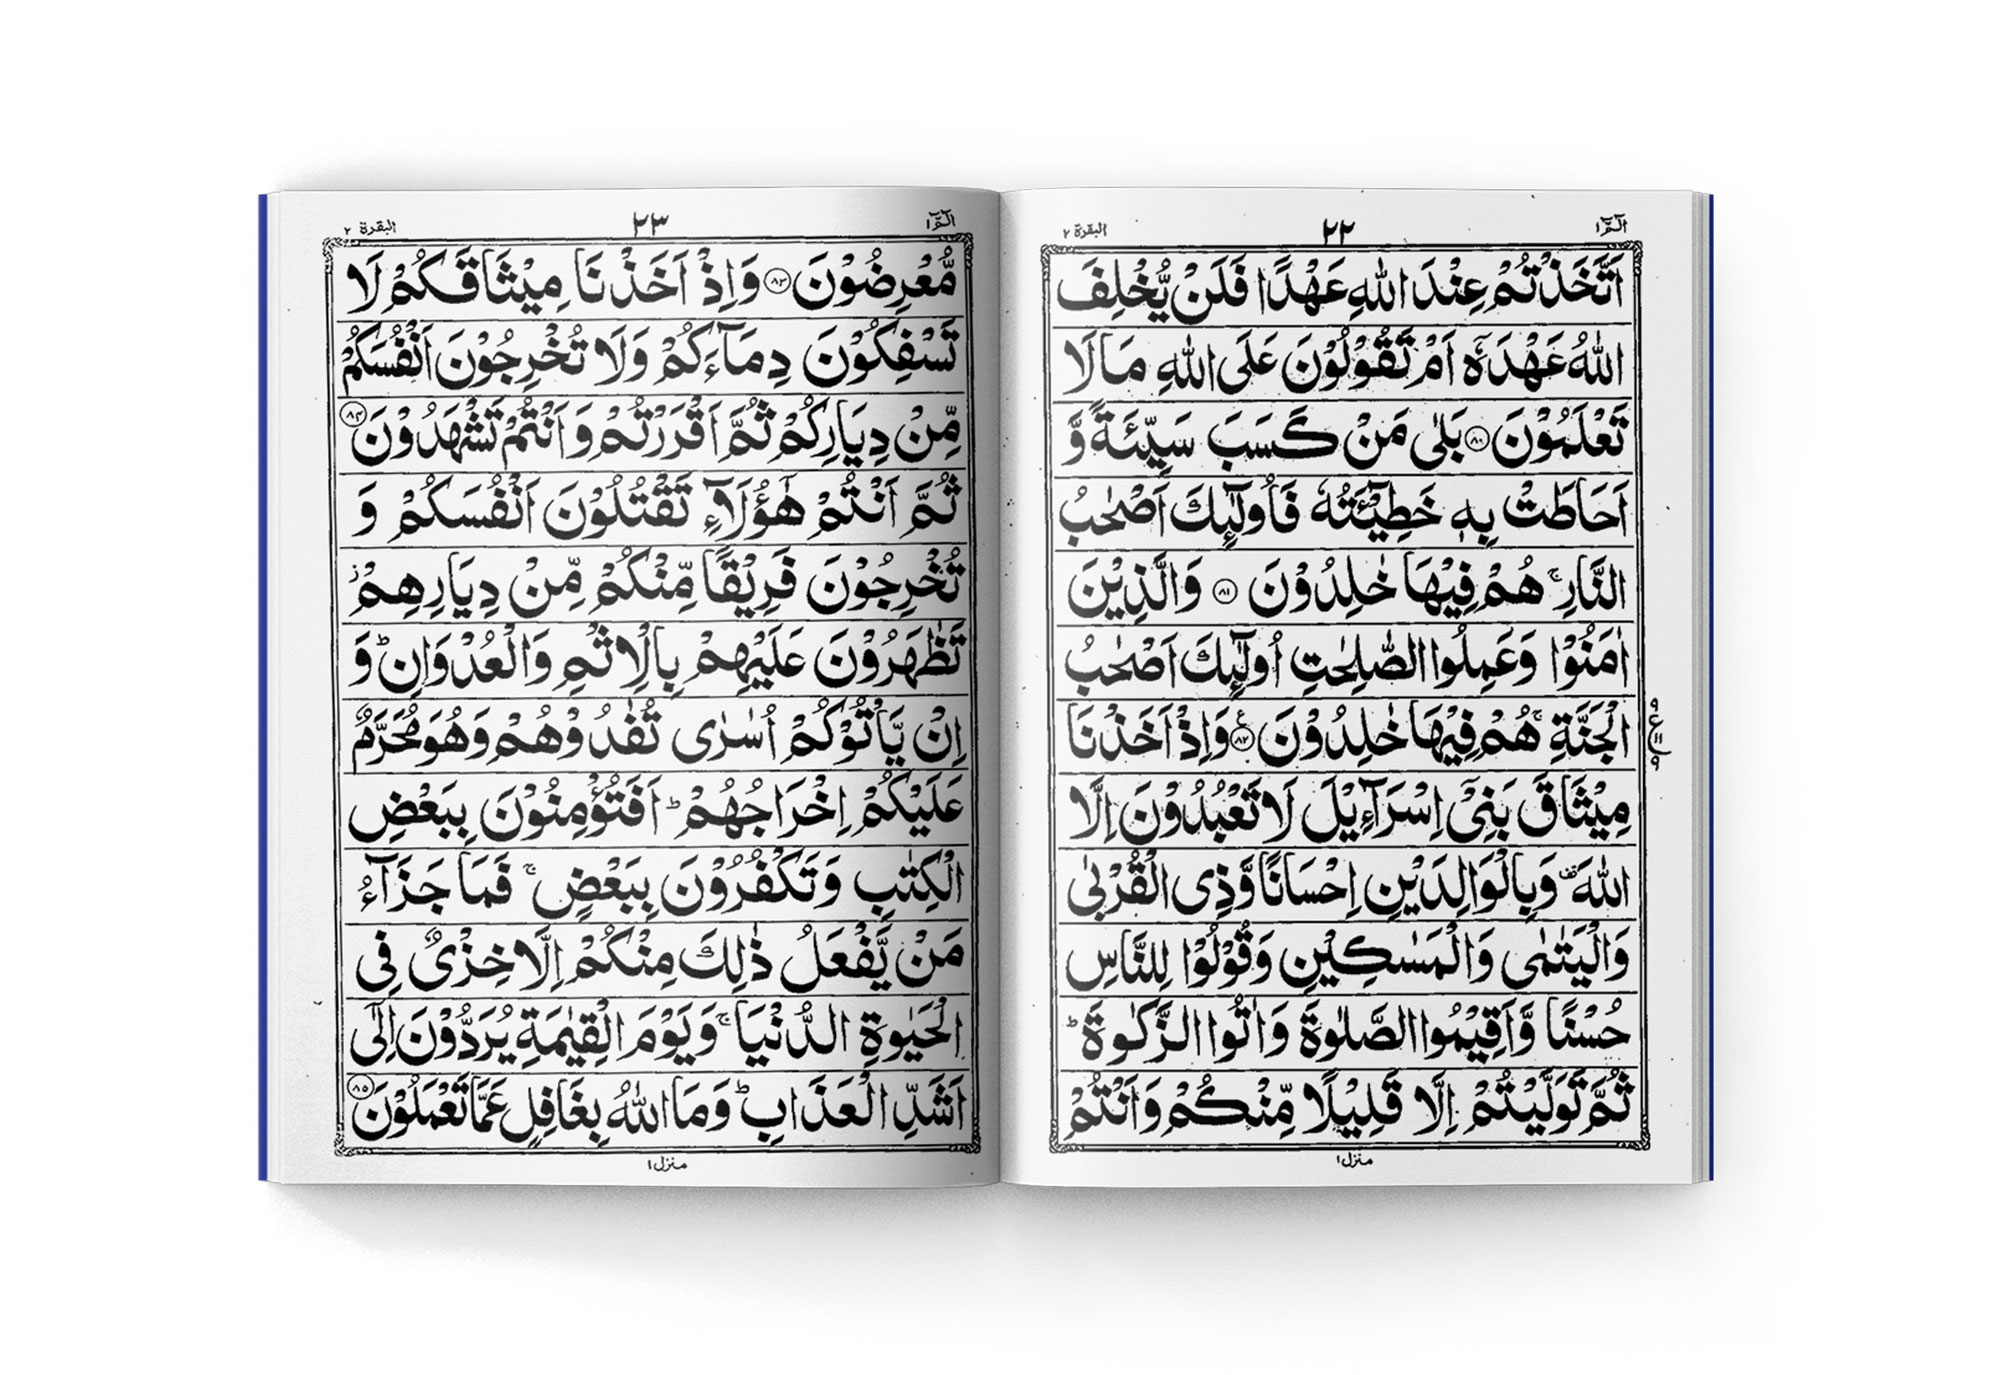 الٓمّٓ ١
٢٢
البقرة ٢
اَتَّخَذْتُمْ عِنْدَ اللّٰهِ عَهْدًا فَلَنْ يُّخْلِفَ
اللّٰهُ عَهْدَهٗۤ اَمْ تَقُوْلُوْنَ عَلَى اللّٰهِ مَا لَا
تَعْلَمُوْنَ ۝٨٠ بَلٰى مَنْ كَسَبَ سَيِّئَةً وَّ
اَحَاطَتْ بِهٖ خَطِيْٓئَتُهٗ فَاُولٰٓئِكَ اَصْحٰبُ
النَّارِ ۚ هُمْ فِيْهَا خٰلِدُوْنَ ۝٨١ وَالَّذِيْنَ
اٰمَنُوْا وَعَمِلُوا الصّٰلِحٰتِ اُولٰٓئِكَ اَصْحٰبُ
الْجَنَّةِ ۚ هُمْ فِيْهَا خٰلِدُوْنَ ۝٨٢ وَاِذْ اَخَذْنَا
مِيْثَاقَ بَنِيْٓ اِسْرَآءِيْلَ لَا تَعْبُدُوْنَ اِلَّا
اللّٰهَ ۟ وَبِالْوَالِدَيْنِ اِحْسَانًا وَّذِى الْقُرْبٰى
وَالْيَتٰمٰى وَالْمَسٰكِيْنِ وَقُوْلُوْا لِلنَّاسِ
حُسْنًا وَّاَقِيْمُوا الصَّلٰوةَ وَاٰتُوا الزَّكٰوةَ ؕ
ثُمَّ تَوَلَّيْتُمْ اِلَّا قَلِيْلًا مِّنْكُمْ وَاَنْتُمْ
منزل ١
الٓمّٓ ١
٢٣
البقرة ٢
مُّعْرِضُوْنَ ۝٨٣ وَاِذْ اَخَذْنَا مِيْثَاقَكُمْ لَا
تَسْفِكُوْنَ دِمَآءَكُمْ وَلَا تُخْرِجُوْنَ اَنْفُسَكُمْ
مِّنْ دِيَارِكُمْ ثُمَّ اَقْرَرْتُمْ وَاَنْتُمْ تَشْهَدُوْنَ ۝٨٤
ثُمَّ اَنْتُمْ هٰٓؤُلَآءِ تَقْتُلُوْنَ اَنْفُسَكُمْ وَ
تُخْرِجُوْنَ فَرِيْقًا مِّنْكُمْ مِّنْ دِيَارِهِمْ ز
تَظٰهَرُوْنَ عَلَيْهِمْ بِالْاِثْمِ وَالْعُدْوَانِ ؕ وَ
اِنْ يَّاْتُوْكُمْ اُسٰرٰى تُفٰدُوْهُمْ وَهُوَ مُحَرَّمٌ
عَلَيْكُمْ اِخْرَاجُهُمْ ؕ اَفَتُؤْمِنُوْنَ بِبَعْضِ
الْكِتٰبِ وَتَكْفُرُوْنَ بِبَعْضٍ ۚ فَمَا جَزَآءُ
مَنْ يَّفْعَلُ ذٰلِكَ مِنْكُمْ اِلَّا خِزْىٌ فِى
الْحَيٰوةِ الدُّنْيَا ۚ وَيَوْمَ الْقِيٰمَةِ يُرَدُّوْنَ اِلٰٓى
اَشَدِّ الْعَذَابِ ؕ وَمَا اللّٰهُ بِغَافِلٍ عَمَّا تَعْمَلُوْنَ ۝٨٥
منزل ١